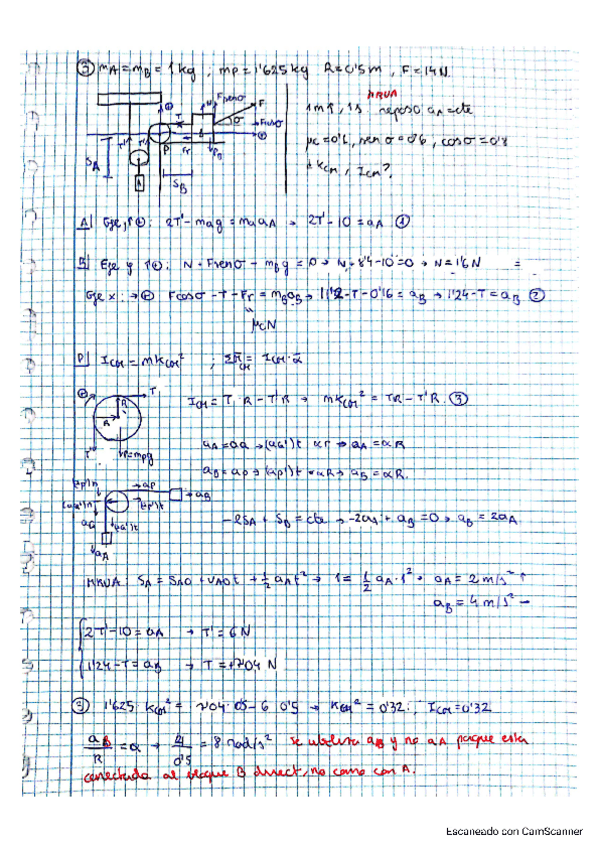 ③ mA = mB = 1 kg, mp = 1'625 kg R = 0'5 m, F = 14 N.
MRUA
1m↑, 1s reposo a_A = cte
μc = 0'1, sen σ = 0'6, cos σ = 0'8
kcm, Icm?
Fsenσ
F
N
T
σ
Fcosσ
P
Fr
SA
SB
A
A| Eje y ↑⊕: 2T' - mAg = mA aA → 2T' - 10 = aA ①
B| Eje y ↑⊕: N + Fsenσ - mBg = 0 → N + 8'4 - 10 = 0 → N = 1'6 N
Eje x: → ⊕ Fcosσ - T - Fr = mB aB → 11'2 - T - 0'16 = aB → 11'24 - T = aB ②
μcN
P| Icm = m kcm² ; ΣM cm = Icm · α
T
R
R
T'
P = mpg
Icm = T R - T'R → m kcm² = TR - T'R ③
aA = αR
aB = αR.
aP
aB
aA
- 2SA + SB = cte → -2aA + aB = 0 → aB = 2aA
MRUA: SA = SA0 + vA0t + 1/2 aA t² → 1 = 1/2 aA · 1² → aA = 2 m/s² ↑
aB = 4 m/s² →
2T' - 10 = aA → T' = 6 N
11'24 - T = aB → T = 7'04 N
③ 1'625 kcm² = 7'04 · 0'5 - 6 · 0'5 → kcm² = 0'32 ; Icm = 0'32
aB/R = α → 4/0'5 = 8 rad/s² se utiliza aB y no aA porque esta
conectada al bloque B direct, no como con A.
Escaneado con CamScanner